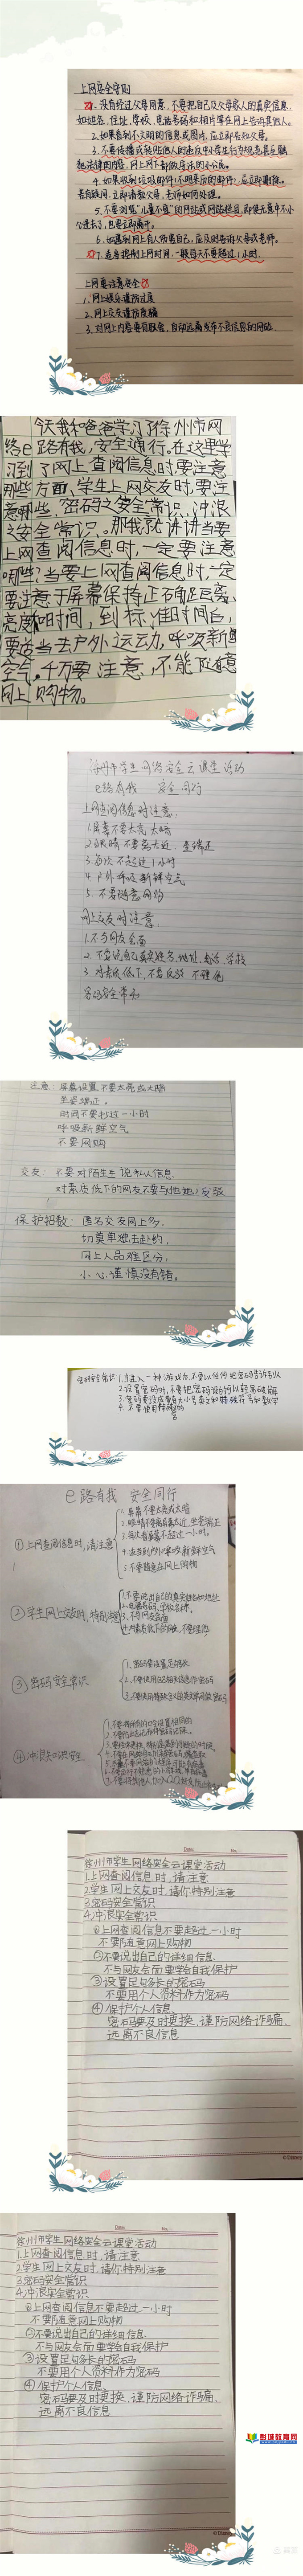 上网安全守则
1、没有经过父母同意,不要把自己及父母家人的真实信息,
如姓名、住址、学校、电话号码和相片等在网上告诉其他人。
2.如果看到不文明的信息或图片,应立即告知父母。
4.如果收到垃圾邮件(不明来历的邮件),应立即删除。
若有疑问,立即请教父母、老师如何处理。
5.不要浏览“儿童不宜”的网站或网站栏目,即使无意中不小
心进去了,也要立即离开。
6.如遇到网上有人伤害自己,应及时告诉父母或老师。
上网要注意安全
1.网上娱乐谨防过度
2.网上交友谨防受骗
今天我和爸爸学习了徐州市网
路e路有我,安全通行,在这里学
习到了网上查阅信息时要注意
哪些方面、学生上网交友时,要注
意哪些,密码之安全常识,冲浪
之安全常识。那我就讲讲当要
上网查阅信息时,一定要注意
哪些?当要上网查阅信息时,一定
要注意于屏幕保持正确距离、
亮度和时间,到标准时间后,
要适当去户外运动,呼吸新鲜
空气。千万要注意,不能随意
网上购物。
徐州市学生网络安全云课堂活动
e路有我 安全同行
上网查阅信息时注意:
1.屏幕不要太亮太暗
2.眼睛不要离太近,坐端正
3.每次不超过1小时
4.户外呼吸新鲜空气
5.不要随意网购
网上交友时注意:
1.不与网友会面
2.不要说自己真实姓名、地址、电话、学校
密码安全常识
注意:屏幕设置不要太亮或太暗
坐姿端正。
时间不要超过一小时
呼吸新鲜空气
不要网购
交友:不要对陌生生说私人信息
对素质低下的网友不要与(他她)反驳
保护招数:匿名交友网上多,
切莫单独去赴约,
网上人品难区分,
小心谨慎没有错。
2.设置密码时,不要把密码设的可以轻易破解
3.密码要设成要有大小写英文和特殊符号和数字
e路有我 安全同行
①上网查阅信息时,请注意
1.屏幕不要太亮或太暗
2.眼睛不要离屏幕太近,坐姿端正
3.每次看屏幕不超过一小时。
4.应及到户外呼吸新鲜空气
5.不要随意在网上购物
②学生网上交友时,特别注意
1.不要说出自己的真实姓名和地址
2.电话号码、学校名称。
3.不与网友会面
③密码安全常识
1.密码要设置足够长
④冲浪知识安全
徐州市学生网络安全云课堂活动
1.上网查阅信息时,请注意
2.学生网上交友时,请你特别注意
3.密码安全常识
4.冲浪安全常识
①上网查阅信息不要超过一小时
不要随意网上购物
②不要说出自己的详细信息
不与网友会面要学会自我保护
③设置足够多长的密码
不要用个人资料作为密码
④保护个人信息
密码要及时更换、谨防网络诈骗、
远离不良信息
© Disney
徐州市学生网络安全云课堂活动
1.上网查阅信息时,请注意
2.学生网上交友时,请你特别注意
3.密码安全常识
4.冲浪安全常识
①上网查阅信息不要超过一小时
不要随意网上购物
②不要说出自己的详细信息
不与网友会面要学会自我保护
③设置足够多长的密码
不要用个人资料作为密码
④保护个人信息
密码要及时更换、谨防网络诈骗、
远离不良信息
彭城教育网
© Disney